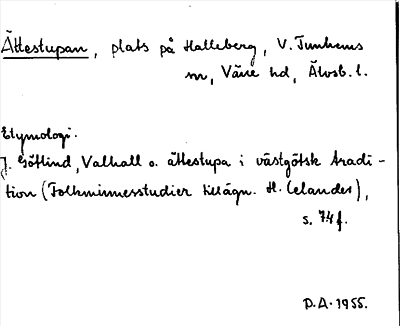 Ättestupan, plats på Halleberg, V. Tunhems
sn, Väne hd, Älvsb. l.
Etymologi.
J. Götlind, Valhall o. ättestupa i västgötsk tradi-
tion (Folkminnesstudier tillägn. H. Celander),
s. 74 f.
P.A. 1955.